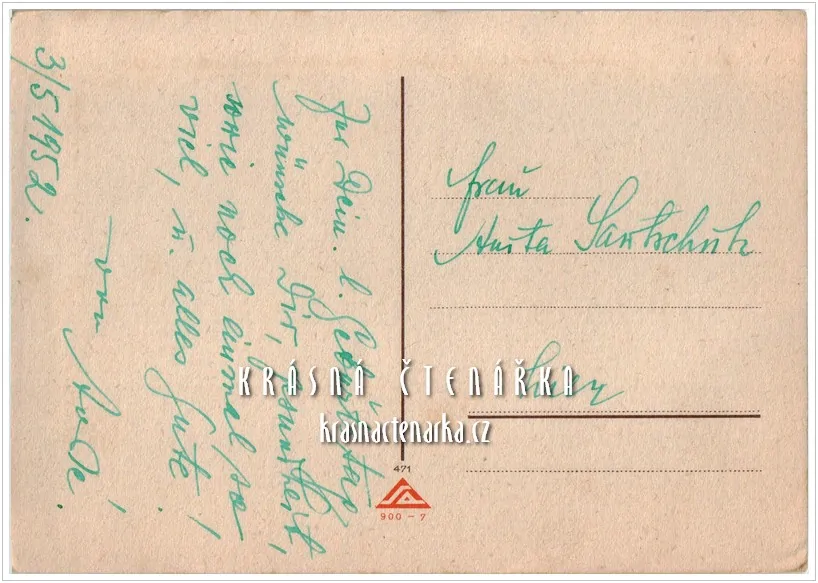 3/5 1952.
Zur Dein. l. Geburtstag
wünsche Dir, Gesundheit,
sowie noch einmal so
viel, u. alles Gute!
von
Frau
KRÁSNÁ ČTENÁŘKA
krasnactenarka.cz
471
900 - 7